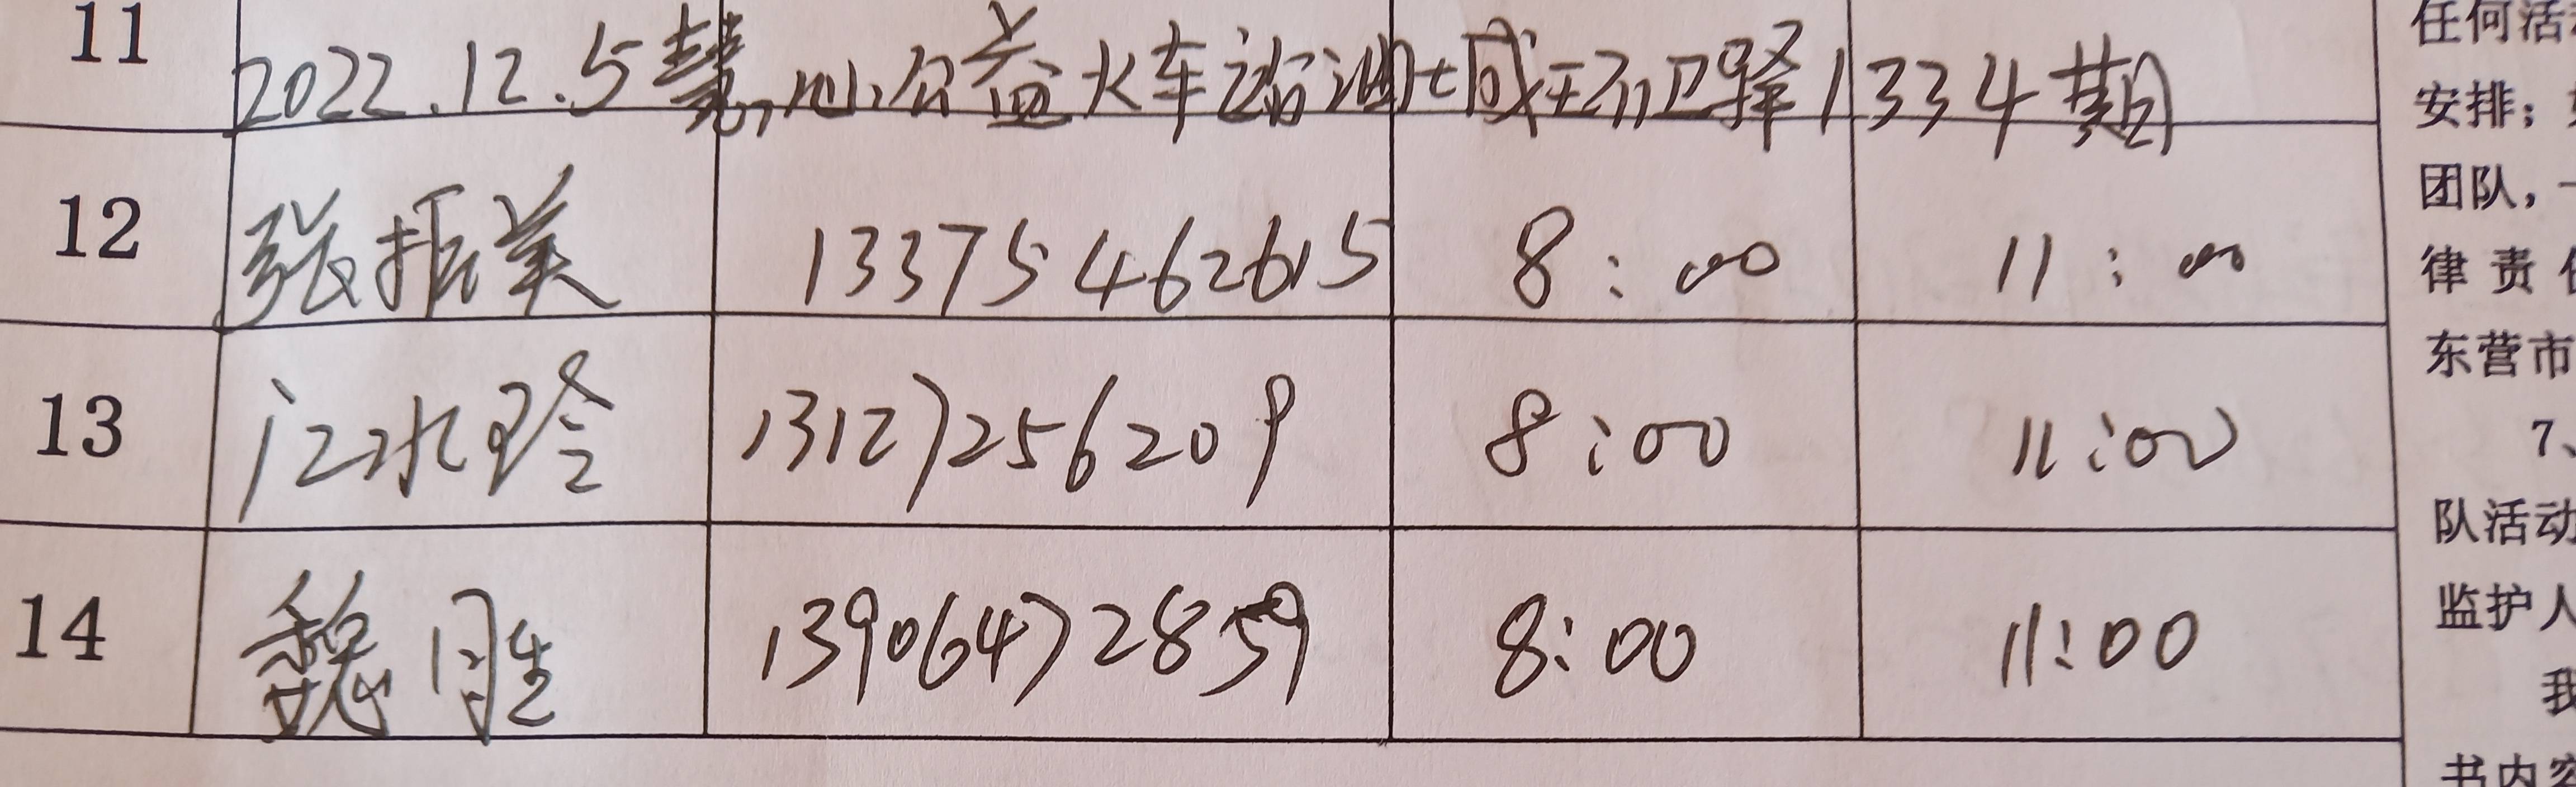 11 2022.12.5慧心公益火车站油城环卫驿1334期
12 张振美 13375462615 8:00 11:00
13 江水玲 13127256209 8:00 11:00
14 魏胜 13906472859 8:00 11:00
任何活
安排;
团队,
律责
东营市
7、
队活动
监护人
我
书内容